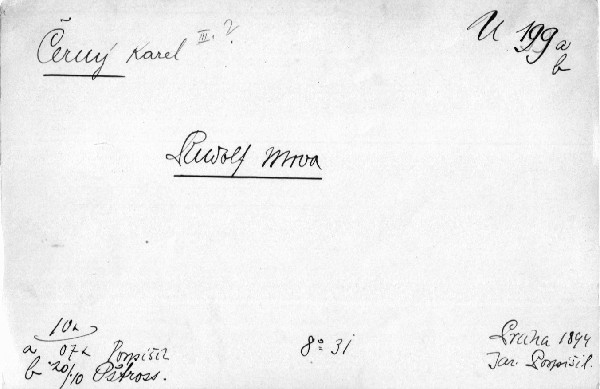 Černý Karel III. ?
U 199 a
b
Rudolf Mrva
10 h
a 07 h Pospíšil
b 20/10 Pštross.
8° 31
Praha 1894
Jar. Pospíšil.